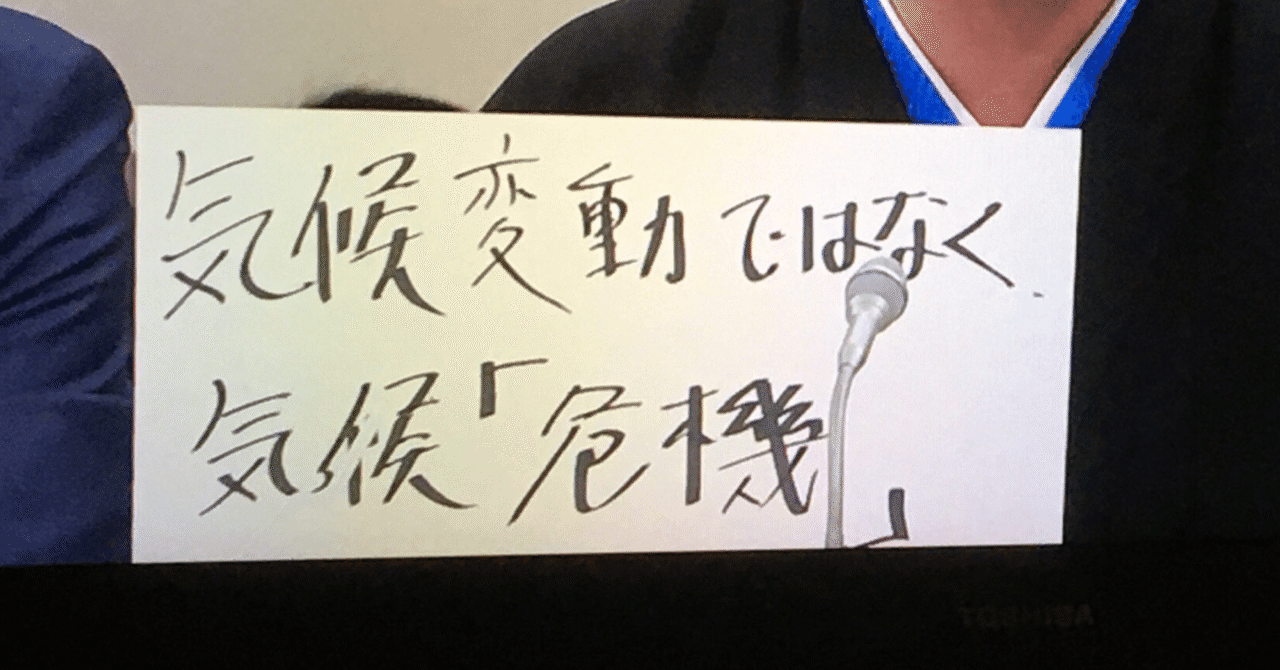 気候変動ではなく
気候「危機」
TOSHIBA